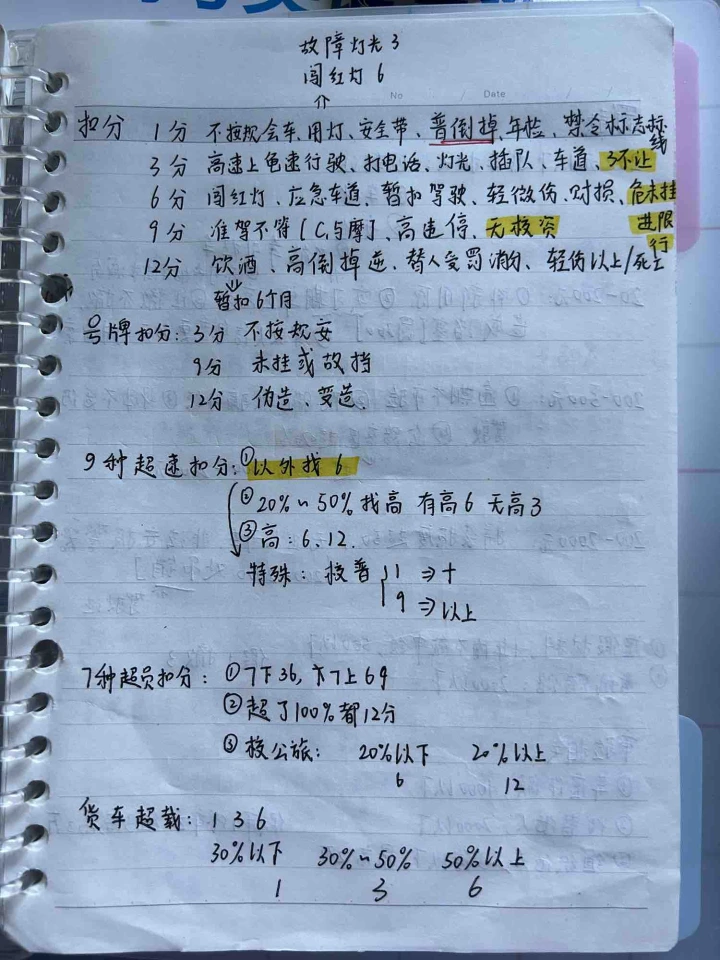 故障灯光 3
闯红灯 6
No
Date
扣分 1分 不按规会车、用灯、安全带、普倒掉、年检、禁令标志标线
3分 高速上龟速行驶、打电话、灯光、插队、车道、3不让
6分 闯红灯、应急车道、暂扣驾驶、轻微伤、财损、危未挂
进限行
9分 准驾不符[C1与摩]、高速停、无校资
12分 饮酒、高倒掉逆、替人受罚消的、轻伤以上/死亡
暂扣6个月
号牌扣分: 3分 不按规安
9分 未挂或故挡
12分 伪造、变造、
9种超速扣分: ①以外找 6
②20%~50% 找高 有高6 无高3
③高: 6、12.
特殊: 校普 1 ⇒ 十
9 ⇒ 以上
7种超员扣分: ①7下36, 7上69
②超了100%都12分
③校公旅: 20%以下 20%以上
6 12
货车超载: 1 3 6
30%以下 30%~50% 50%以上
1 3 6